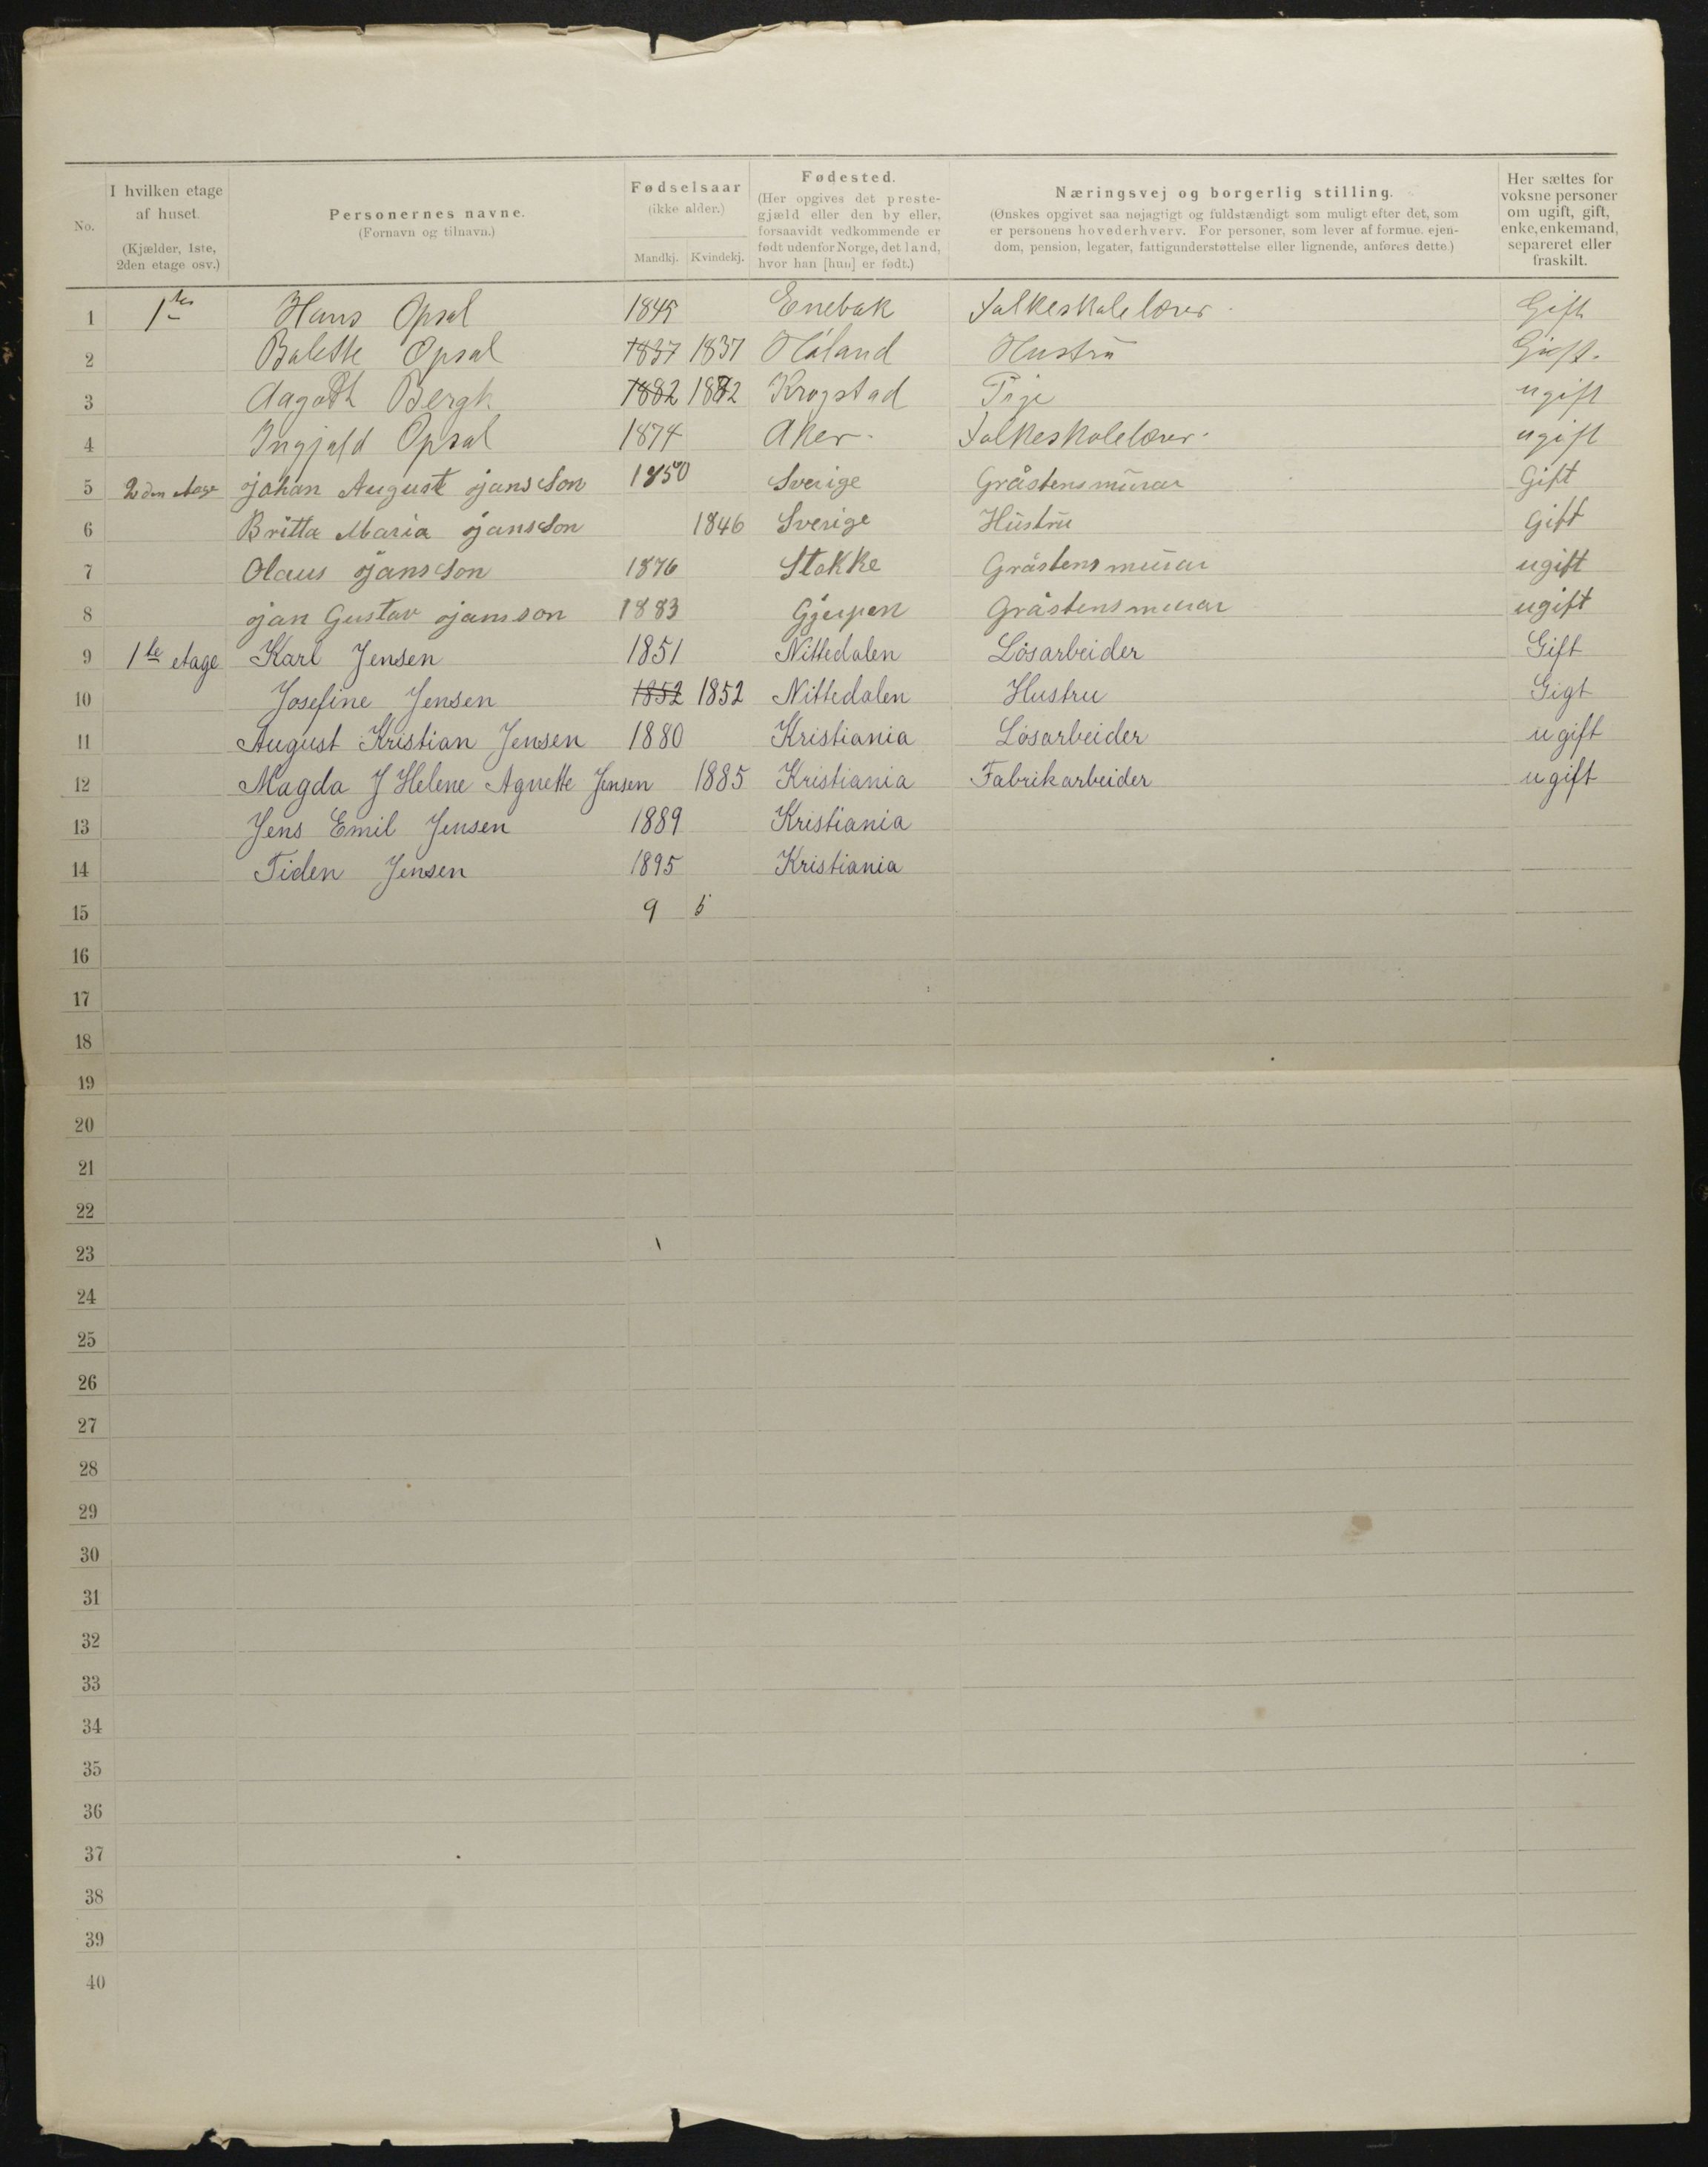 No. | I hvilken etage af huset. (Kjælder, 1ste, 2den etage osv.) | Personernes navne. (Fornavn og tilnavn.) | Fødselsaar (ikke alder.) Mandkj. Kvindekj. | Fødested. (Her opgives det prestegjæld eller den by eller, forsaavidt vedkommende er født udenfor Norge, det land, hvor han [hun] er født.) | Næringsvej og borgerlig stilling. (Ønskes opgivet saa nøjagtigt og fuldstændigt som muligt efter det, som er personens hovederhverv. For personer, som lever af formue, ejendom, pension, legater, fattigunderstøttelse eller lignende, anføres dette.) | Her sættes for voksne personer om ugift, gift, enke, enkemand, separeret eller fraskilt.
1 1ste Hans Opsal Enebak Folkeskolelærer Gift
2 Balette Opsal 1837 1837 Høland Hustru Gift.
3 Aagoth Bergh 1882 1882 Krogstad Pige ugift
4 Ingjald Opsal 1874 Aker. Folkeskolelærer. ugift
5 2den etage johan August jansson 1850 Sverige Gråstensmurar Gift
6 Britta Maria jansson 1846 Sverige Hustru Gift
7 Olaus jansson 1876 Stokke Gråstensmurar ugift
8 jan Gustav jansson 1883 Gjerpen Gråstensmurar ugift
9 1te etage Karl Jensen 1851 Nittedalen Løsarbeider Gift
10 Josefine Jensen 1852 1852 Nittedalen Hustru Gigt
11 August Kristian Jensen 1880 Kristiania Løsarbeider ugift
12 Magda J Helene Agnette Jensen 1885 Kristiania Fabrikarbeider ugift
13 Jens Emil Jensen 1889 Kristiania
14 Tiden Jensen 1895 Kristiania
15 9 5
16
17
18
19
20
21
22
23
24
25
26
27
28
29
30
31
32
33
34
35
36
37
38
39
40